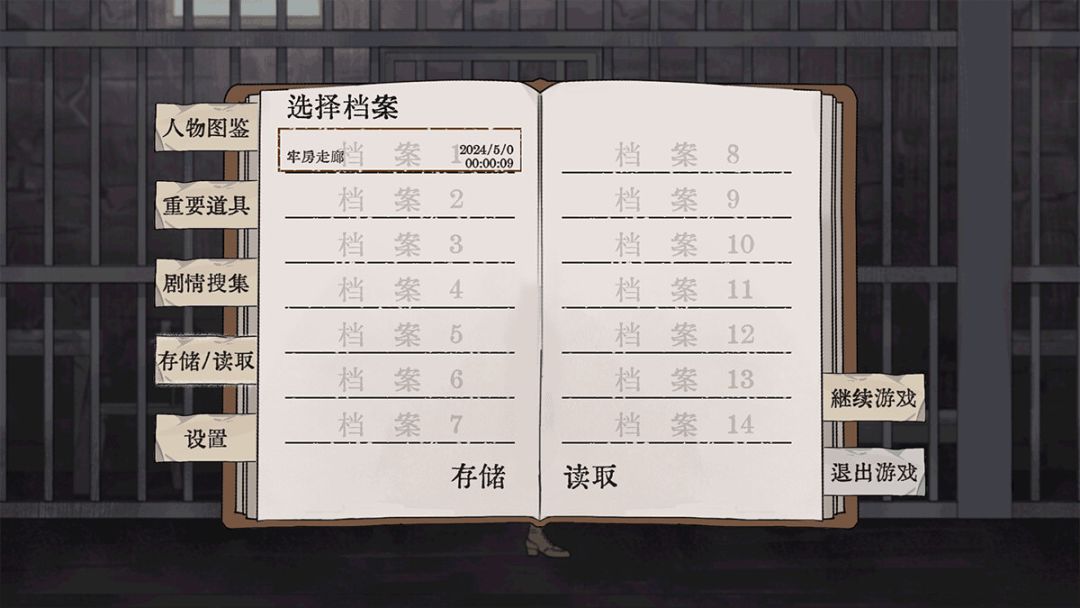 选择档案
人物图鉴
重要道具
剧情搜集
存储/读取
设置
档 案 1
牢房走廊
2024/5/0
00:00:09
档 案 2
档 案 3
档 案 4
档 案 5
档 案 6
档 案 7
档 案 8
档 案 9
档 案 10
档 案 11
档 案 12
档 案 13
档 案 14
存储
读取
継续游戏
退出游戏